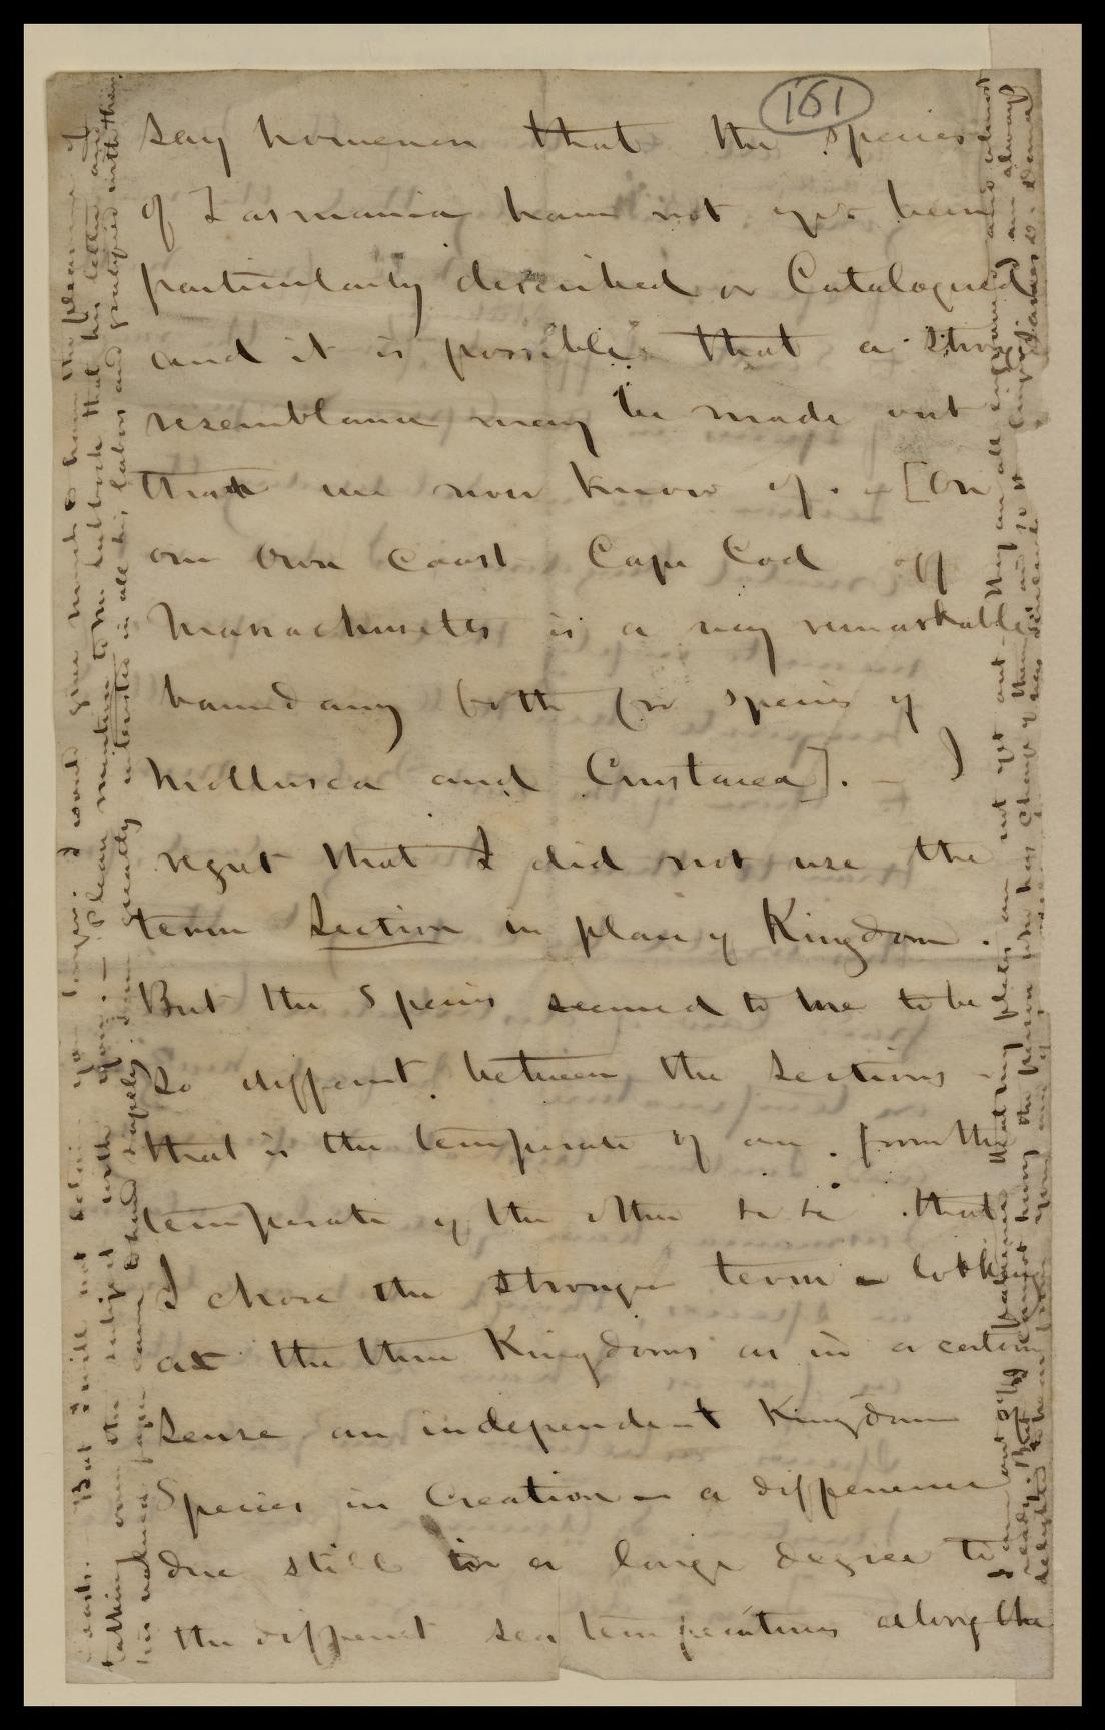 161
say however that the species
of Tasmania have not yet been
particularly described or Catalogued
and it is possible that a strong
resemblance may be made out
that we now know of. - [On
our own Coast Cape Cod off
Massachusetts is a very remarkable
boundary both for species of
Mollusca and Crustacea]. - I
regret that I did not use the
term Section in place of Kingdom.
But the Species seemed to me to be
so different between the sections -
that is the temperate of one from the
temperate of the other &c &c that
I chose the stronger term -
at the three Kingdoms as in a certain
sense an independent Kingdom
Species in Creation - a difference
due still in a large degree to
the different sea temperatures along the
coasts. - But I will not detain you longer. I would give much to have the pleasure of
talking over the subject with you. - Please mention to Mr that his letter and
his valued paper came to hand safely. I am greatly interested in all his labors and gratified with them.
I am out of patience that my plates are not yet out - they are all engraved and almost
ready. But I cannot hurry the person who has charge of them and
delighted to hear from you
James D. Dana